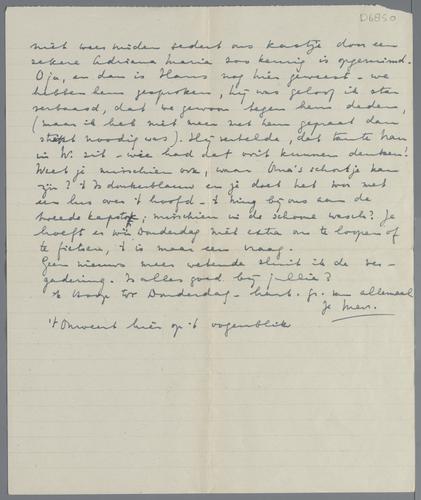 D6850
niet weer minder sedert ons kastje door een
zekere Adriana Maria zoo keurig is opgeruimd.
O ja, en dan is Hans nog hier geweest - we
hebben hem gesproken, hij was geloof ik stom
verbaasd, dat we gewoon tegen hem deden,
(maar ik heb niet meer met hem gepraat dan
strikt noodig was). Hij vertelde, dat tante Han
in W. zit - wie had dat ooit kunnen denken!
Weet je misschien ook, waar Oma's schortje kan
zijn? 't Is donkerblauw en je doet het voor met
een lus over 't hoofd - 't hing bij ons aan de
breede kapstok; misschien in de schoone wasch? Je
hoeft er vóór Donderdag niet extra om te loopen of
te fietsen, 't is maar een vraag.
Geen nieuws meer wetende sluit ik de ver-
gadering. Is alles goed bij jullie?
Ik hoop tot Donderdag - hart. gr. van allemaal
Je
't Onweert hier op 't oogenblik